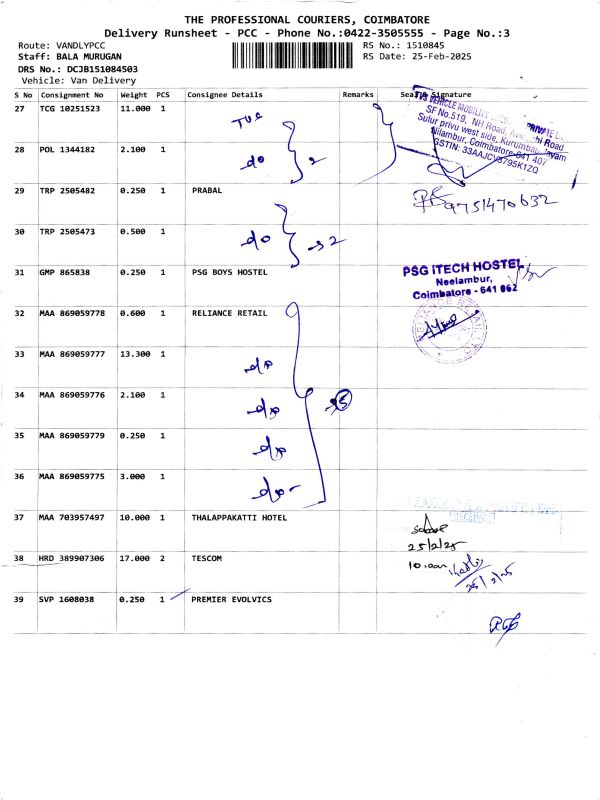 THE PROFESSIONAL COURIERS, COIMBATORE
Delivery Runsheet - PCC - Phone No.:0422-3505555 - Page No.:3
Route: VANDLYPCC RS No.: 1510845
Staff: BALA MURUGAN RS Date: 25-Feb-2025
DRS No.: DCJB151084503
Vehicle: Van Delivery
S No Consignment No Weight PCS Consignee Details Remarks Seal & Signature
27 TCG 10251523 11.000 1
SF No.519, NH Road,
Sulur privu west side,
Nilambur, Coimbatore-641 407
28 POL 1344182 2.100 1 do 2
29 TRP 2505482 0.250 1 PRABAL
9751470632
30 TRP 2505473 0.500 1 do 2
31 GMP 865838 0.250 1 PSG BOYS HOSTEL
PSG iTECH HOSTEL
Neelambur,
Coimbatore - 641 062
32 MAA 869059778 0.600 1 RELIANCE RETAIL
33 MAA 869059777 13.300 1 do
34 MAA 869059776 2.100 1 do 5
35 MAA 869059779 0.250 1 do
36 MAA 869059775 3.000 1 do
37 MAA 703957497 10.000 1 THALAPPAKATTI HOTEL
RECEIVED
25/2/25
38 HRD 389907306 17.000 2 TESCOM
10.00am
25/2/25
39 SVP 1608038 0.250 1 PREMIER EVOLVICS